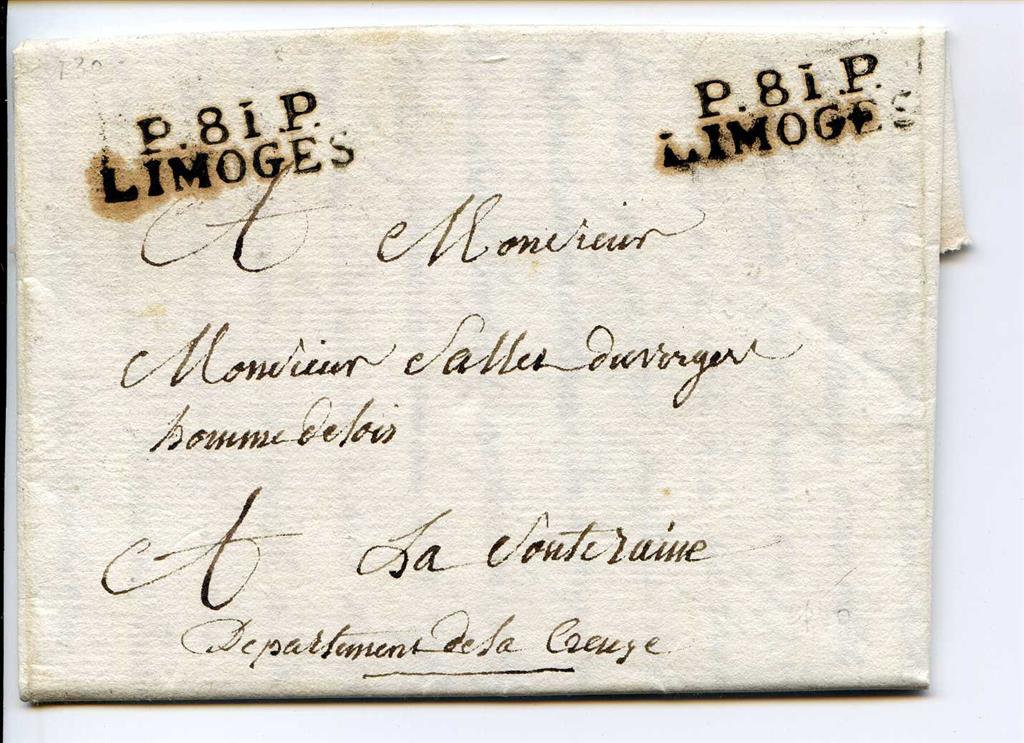 P.81.P.
LIMOGES
P.81.P.
LIMOGES
A Monsieur
Monsieur Salles duverger
homme de lois
A La Souteraine
Departement de la Creuse